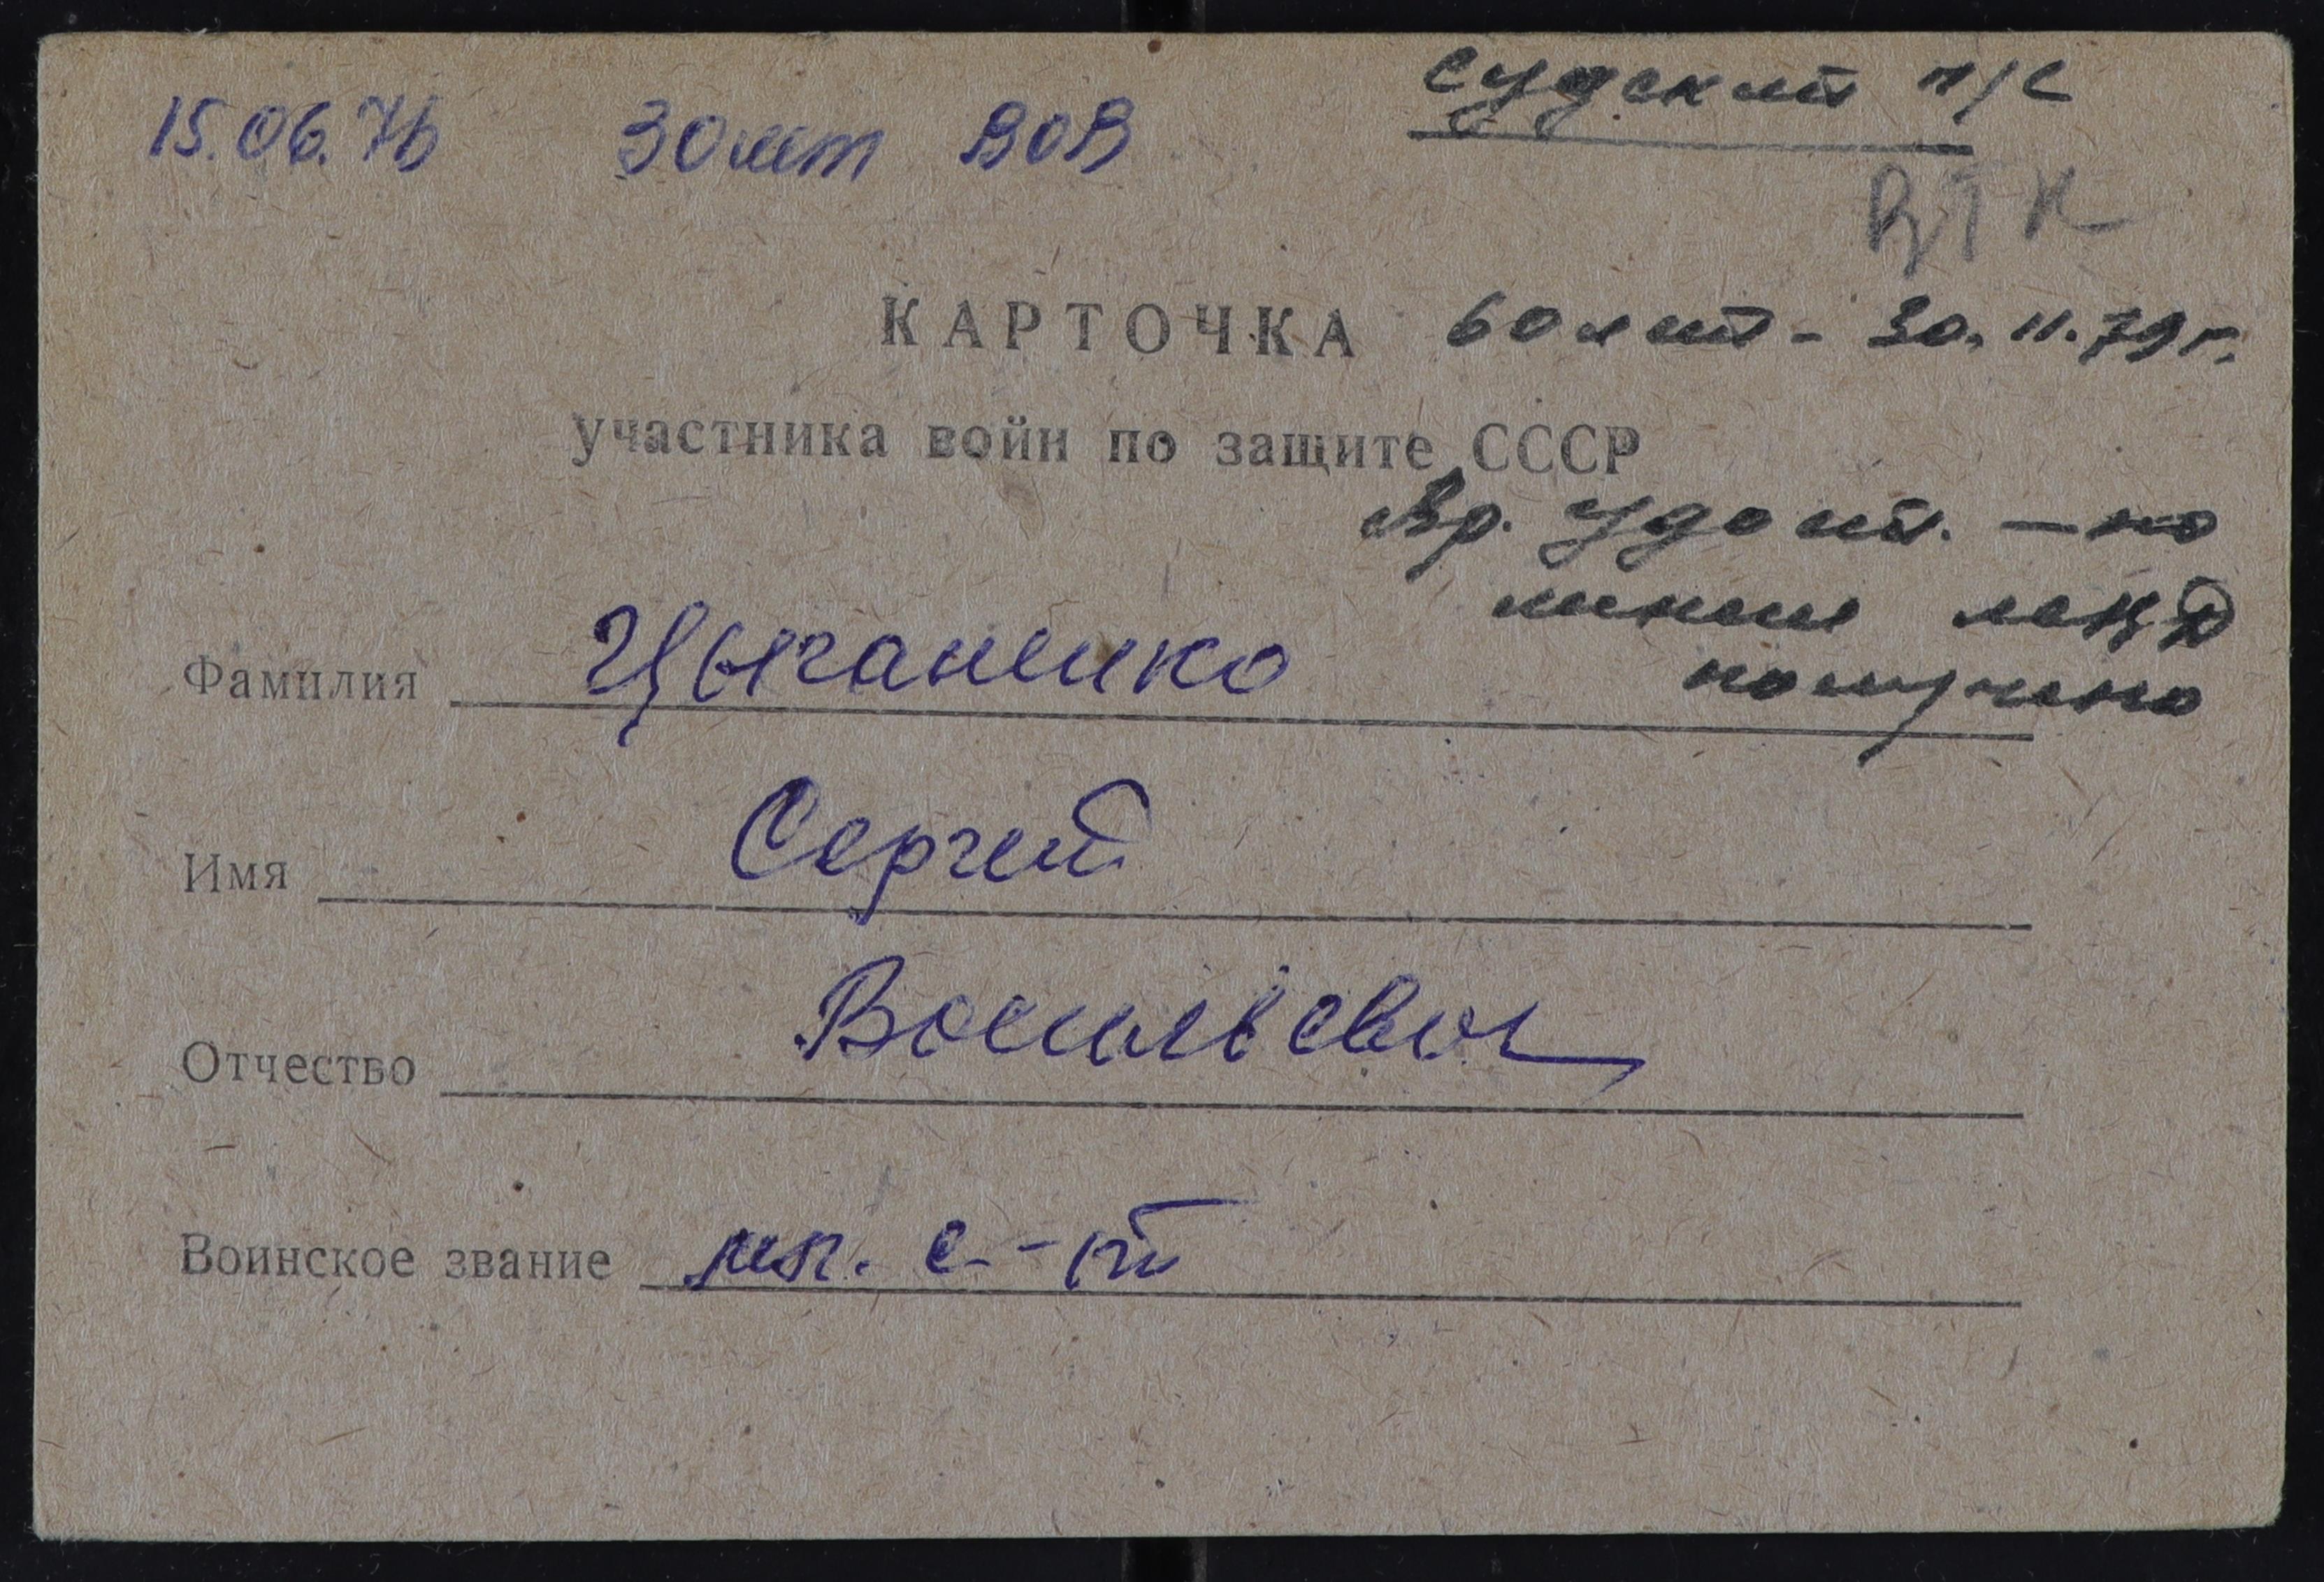 Судский п/с
15.06.76 30 лет ВОВ
ВТК
КАРТОЧКА 60 лет - 30.11.79 г.
участника войн по защите СССР
Вр. удост. - по
линии
получено
Фамилия Цыганенко
Имя Сергей
Отчество Васильевич
Воинское звание мл. с-нт